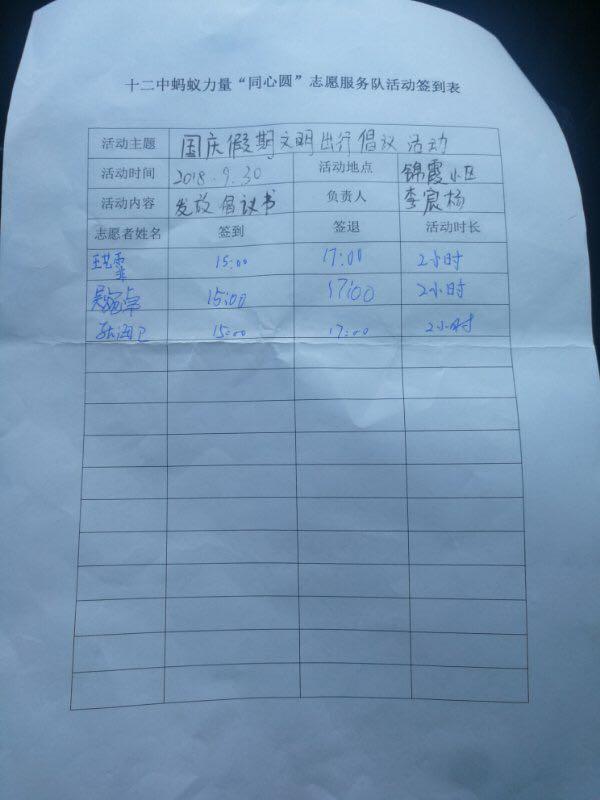 十二中蚂蚁力量“同心圆”志愿服务队活动签到表
活动主题 国庆假期文明出行倡议活动
活动时间 2018.9.30 活动地点 锦霞小区
活动内容 发放倡议书 负责人 李宸杨
志愿者姓名 签到 签退 活动时长
15:00 17:00 2小时
15:00 17:00 2小时
15:00 17:00 2小时